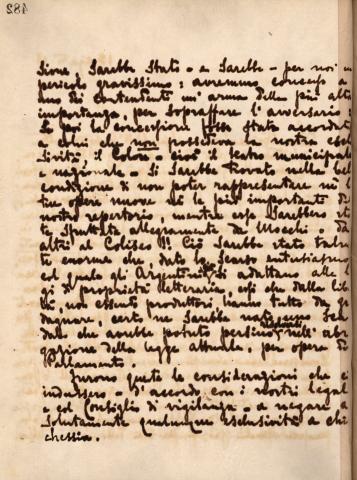 482
sione sarebbe stato - e sarebbe - per noi un
pericolo gravissimo: avremmo concesso a
uno dei contendenti un'arma della più alta
importanza, per sopraffare l'avversario.
Se poi la concessione fosse stata accordata
a colui che non possedeva la nostra esclu
sività, il Colon - cioè il teatro municipale
e nazionale - si sarebbe trovato nella bel
condizione di non poter rappresentare nè l
tre opere nuove nè le più importanti del
nostro repertorio, mentre esse sarebbero sta
te sfruttate allegramente da Mocchi o da
altri al Coliseo!! Ciò sarebbe stato talmen
te enorme che, dato lo scarso entusiasmo
col quale gli Argentini si adattano alle leg
gi di proprietà letteraria, essi che dalla liber
tà, non essendo produttori hanno tutto da gua
dagnare, certo ne sarebbe nato uno scan
dalo che avrebbe potuto persino nell'abro
gazione della legge attuale, per opera di
Parlamento.
Furono queste le considerazioni che ci
indussero - d'accordo con i nostri legali
e col Consiglio di vigilanza - a negare as
solutamente qualunque esclusività a chi
chessia.